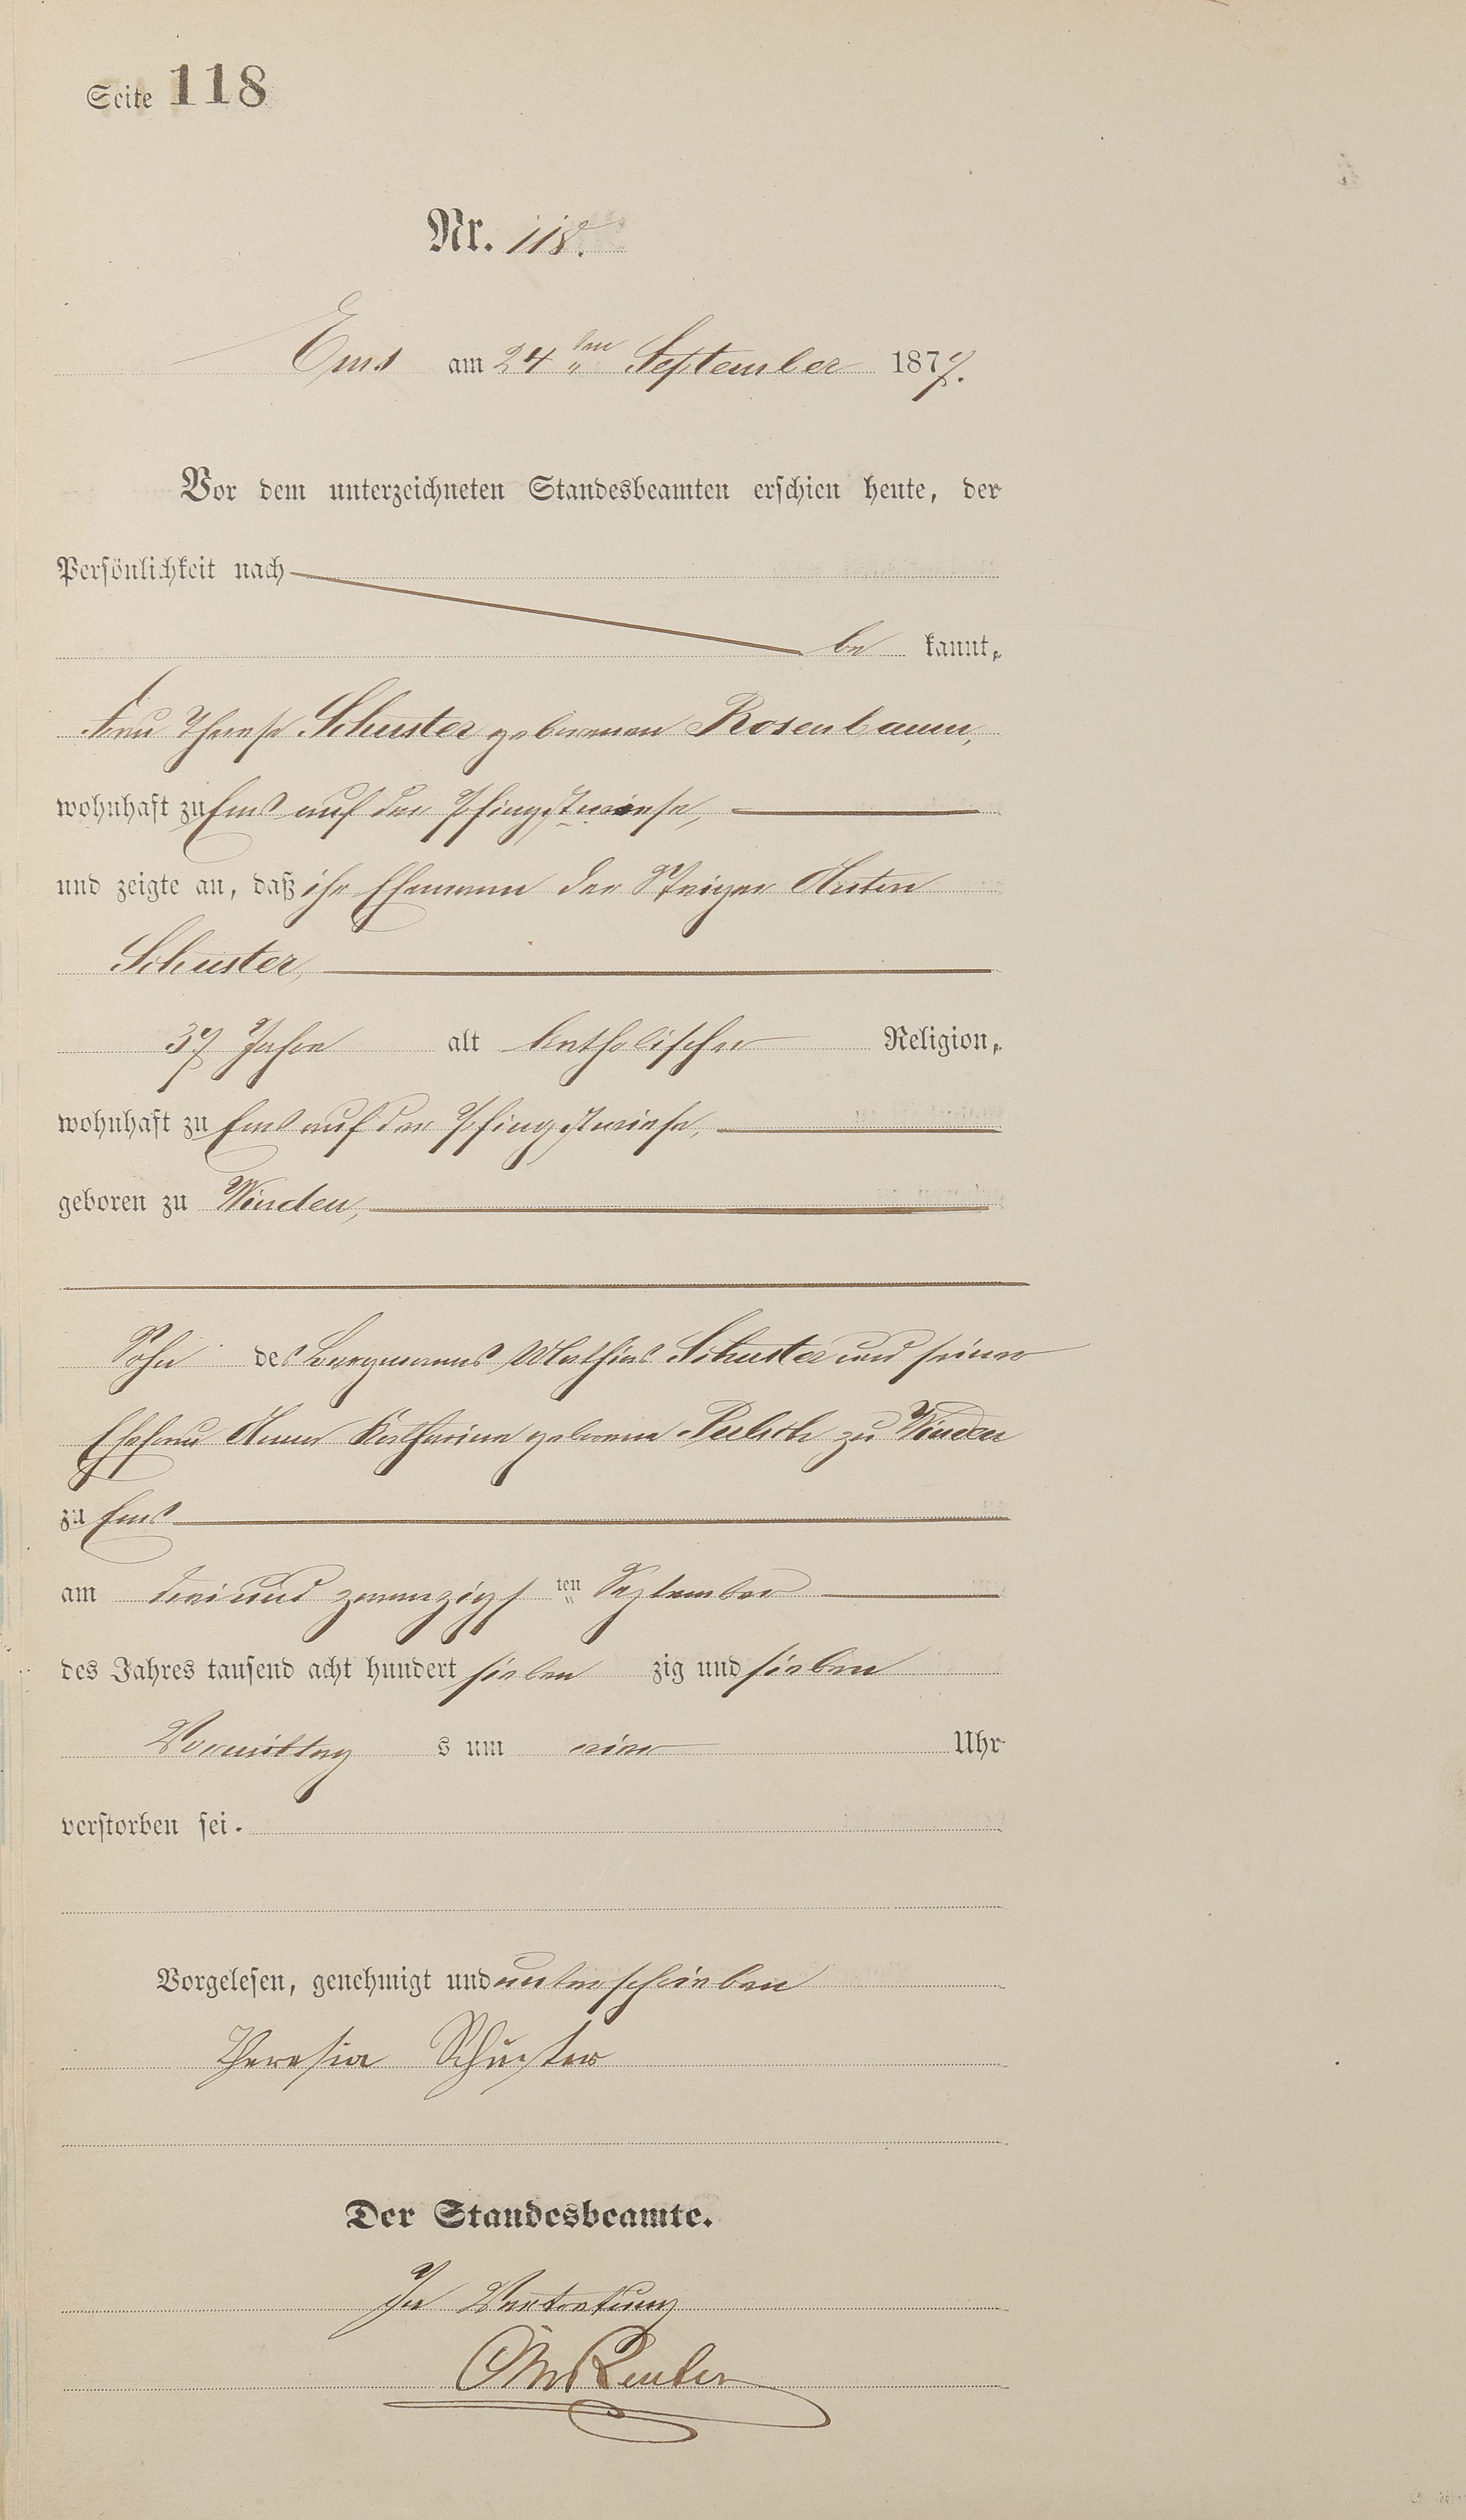 Seite 118
Nr. 118.
Ems am 24 ten September 1877.
Vor dem unterzeichneten Standesbeamten erschien heute, der
Persönlichkeit nach
be kannt,
Frau Therese Schuster geborenen Rosenbaum,
wohnhaft zu Ems auf der Pfingstwiese,
und zeigte an, daß ihr Ehemann der Steiger Anton
Schuster,
37 Jahre alt katholischer Religion,
wohnhaft zu Ems auf der Pfingstwiese,
geboren zu Winden,
Sohn des Bergmanns Mathias Schuster und seiner
Ehefrau Anna Katharina geborene zu Winden
zu Ems
am drei und zwanzigs ten September
des Jahres tausend acht hundert sieben zig und sieben
Vormittag s um Uhr
verstorben sei.
Vorgelesen, genehmigt und unterschrieben
Theresia Schuster
Der Standesbeamte.
In Vertretung
Reuter